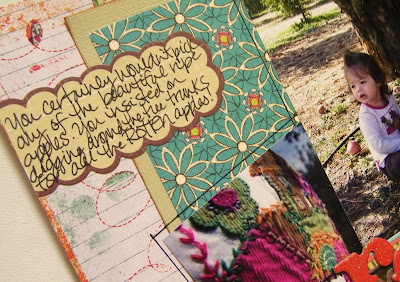 You certainly wouldn't pick
any of the beautiful ripe
apples. You insisted on
digging around the tree trunks
for all the rotten apples!